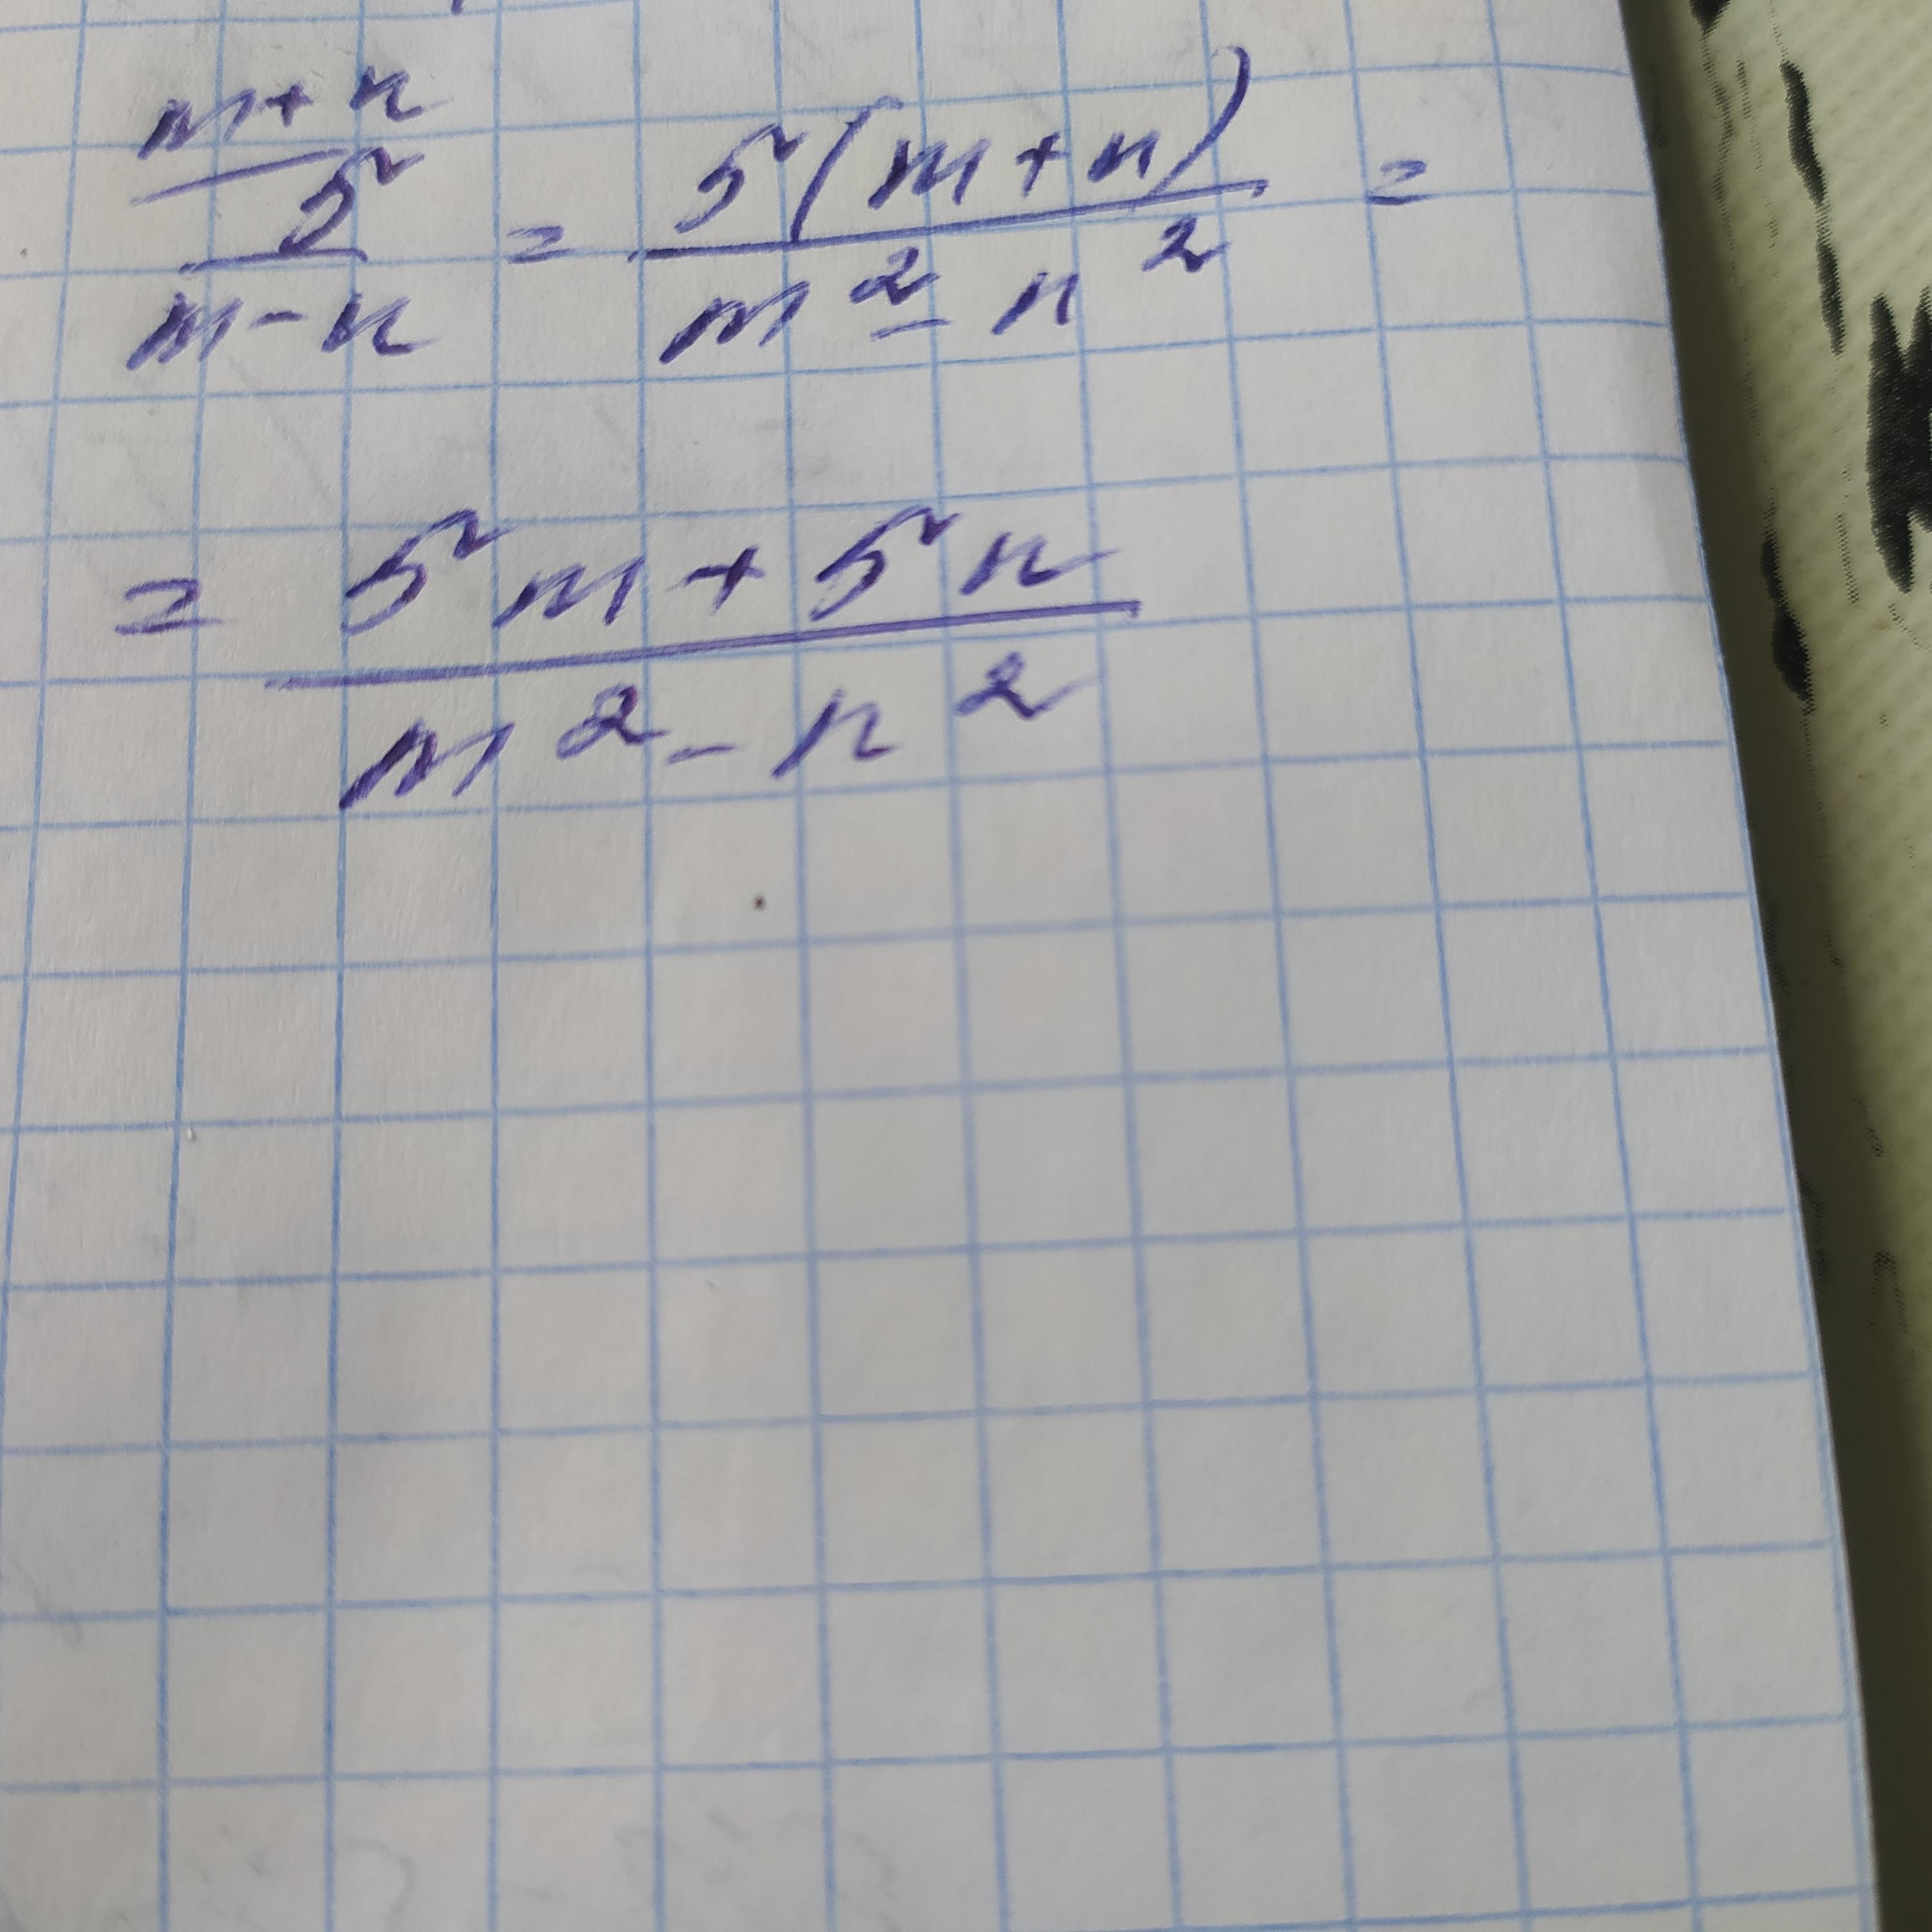 m+n
5
m-n
= 5(m+n) / m² - n² =
= 5m+5n / m² - n²